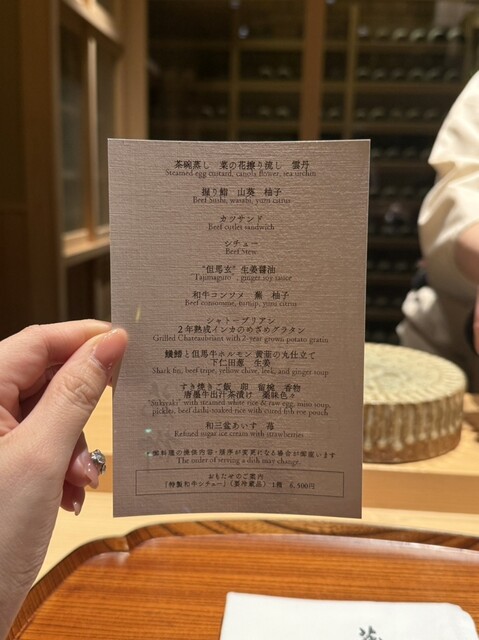 茶碗蒸し　菜の花擦り流し　雲丹
Steamed egg custard, canola flower, sea urchin
握り鮨　山葵　柚子
Beef Sushi, wasabi, yuzu citrus
カツサンド
Beef cutlet sandwich
シチュー
Beef Stew
"但馬玄" 生姜醤油
"Tajimaguro", ginger soy sauce
和牛コンソメ　蕪　柚子
Beef consommé, turnip, yuzu citrus
シャトーブリアン
２年熟成インカのめざめグラタン
Grilled Chateaubriand with 2-year grown potato gratin
鱶鰭と但馬牛ホルモン 黄韮の丸仕立て
下仁田葱　生姜
Shark fin, beef tripe, yellow chive, leek, and ginger soup
すき焼きご飯　卵　留椀　香物
唐墨牛出汁茶漬け　薬味色々
"Sukiyaki" with steamed white rice & raw egg, miso soup,
pickles, beef dashi-soaked rice with cured fish roe pouch
和三盆あいす　苺
Refined sugar ice cream with strawberries
The order of serving a dish may change.
おもたせのご案内
「特製和牛シチュー」（要冷蔵品） 1箱　6,500円